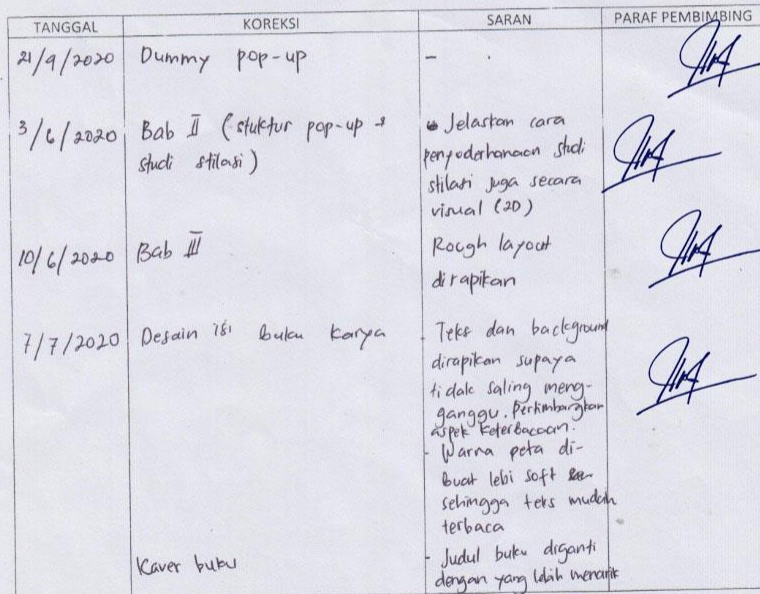 TANGGAL KOREKSI SARAN PARAF PEMBIMBING
21/9/2020 Dummy pop-up -
3/6/2020 Bab II (stuktur pop-up &
studi stilasi)
Jelaskan cara
penyederhanaan studi
stilasi juga secara
visual (2D)
10/6/2020 Bab III
Rough layout
dirapikan
7/7/2020 Desain isi buku karya
- Teks dan background
dirapikan supaya
tidak saling meng-
ganggu. Pertimbangkan
aspek keterbacaan.
- Warna peta di-
buat lebi soft
sehingga teks mudah
terbaca
Kaver buku
- Judul buku diganti
dengan yang lebih menarik